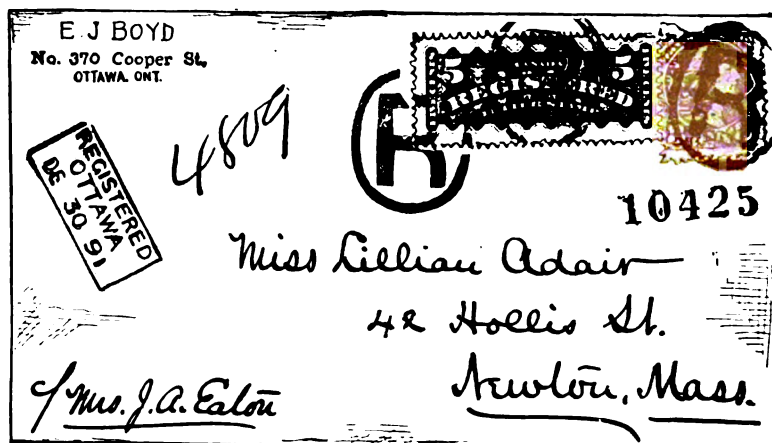 E. J BOYD
No. 370 Cooper St,
OTTAWA. ONT.
5 5
REGISTERED
R
REGISTERED
OTTAWA
DE 30 91
4809
10425
Miss Lillian Adair
42 Hollis St.
Newton, Mass.
c/ Mrs. J. A. Eaton